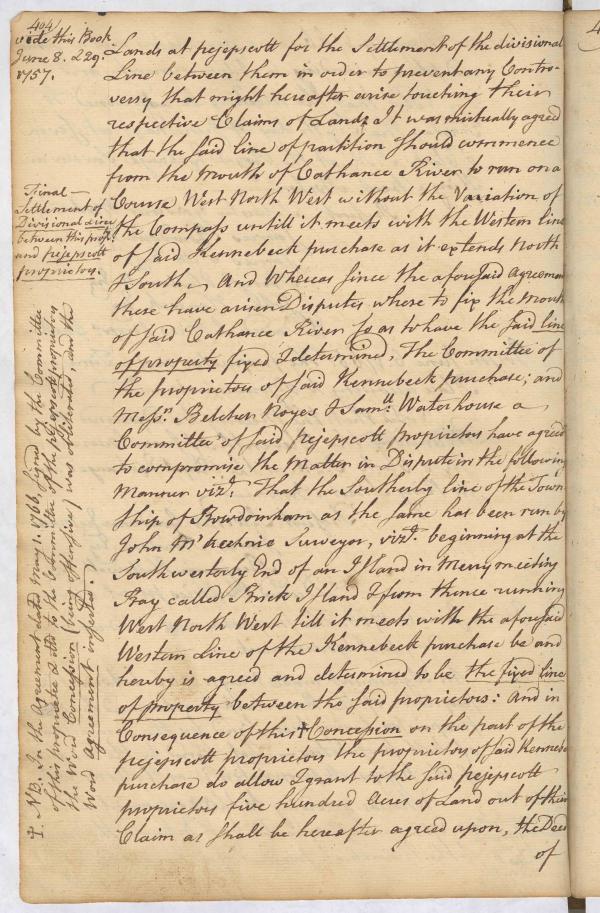 404
vide this Book
June 8. 229.
1757.
Lands at pejepscott for the Settlement of the divisional
Line between them in order to prevent any Contro-
versy that might hereafter arise touching their
respective Claims of Lands It was mutually agreed
that the said line of partition Should commence
from the Mouth of Cathance River to run on a
Course West North West without the Variation of
the Compass untill it meets with the Western line
of Said Kennebeck purchase as it extends North
& South, And Whereas Since the aforesaid Agreement
there have arisen Disputes where to fix the Mouth
of said Cathance River So as to have the said line
of property fixed & determined, The Committee of
the proprietors of Said Kennebeck purchase; and
Messrs. Belcher Noyes & Saml. Waterhouse a
Committee of Said pejepscott proprietors have agreed
to compromise the Matter in Dispute in the following
Manner vizt. That the Southerly line of the Town
Ship of Bowdoinham as the Same has been run by
John Mc.Kechnie Surveyor, vizt. beginning at the
Southwesterly End of an Island in Merrymeeting
Bay called Brick Island & from thence running
West North West till it meets with the aforesaid
Western Line of the Kennebeck purchase be and
hereby is agreed and determined to be the fixed line
of property between the Said proprietors: And in
Consequence of this ‡ Concession on the part of the
pejepscott proprietors the proprietors of Said Kennebeck
purchase do allow & grant to the Said pejepscott
proprietors five hundred Acres of Land out of their
Claim as Shall be hereafter agreed upon, the Deed
of
Final
Settlement of
Divisional Line
between this prop.
and pejepscott
proprietors.
‡. NB. In the Agreement dated May 1. 1766, Signed by the Committee
of this proprietee & also to the Committee of the pejepscott proprietors
the Word Concession (being offensive) was obliterated, and the
Word Agreement inserted.